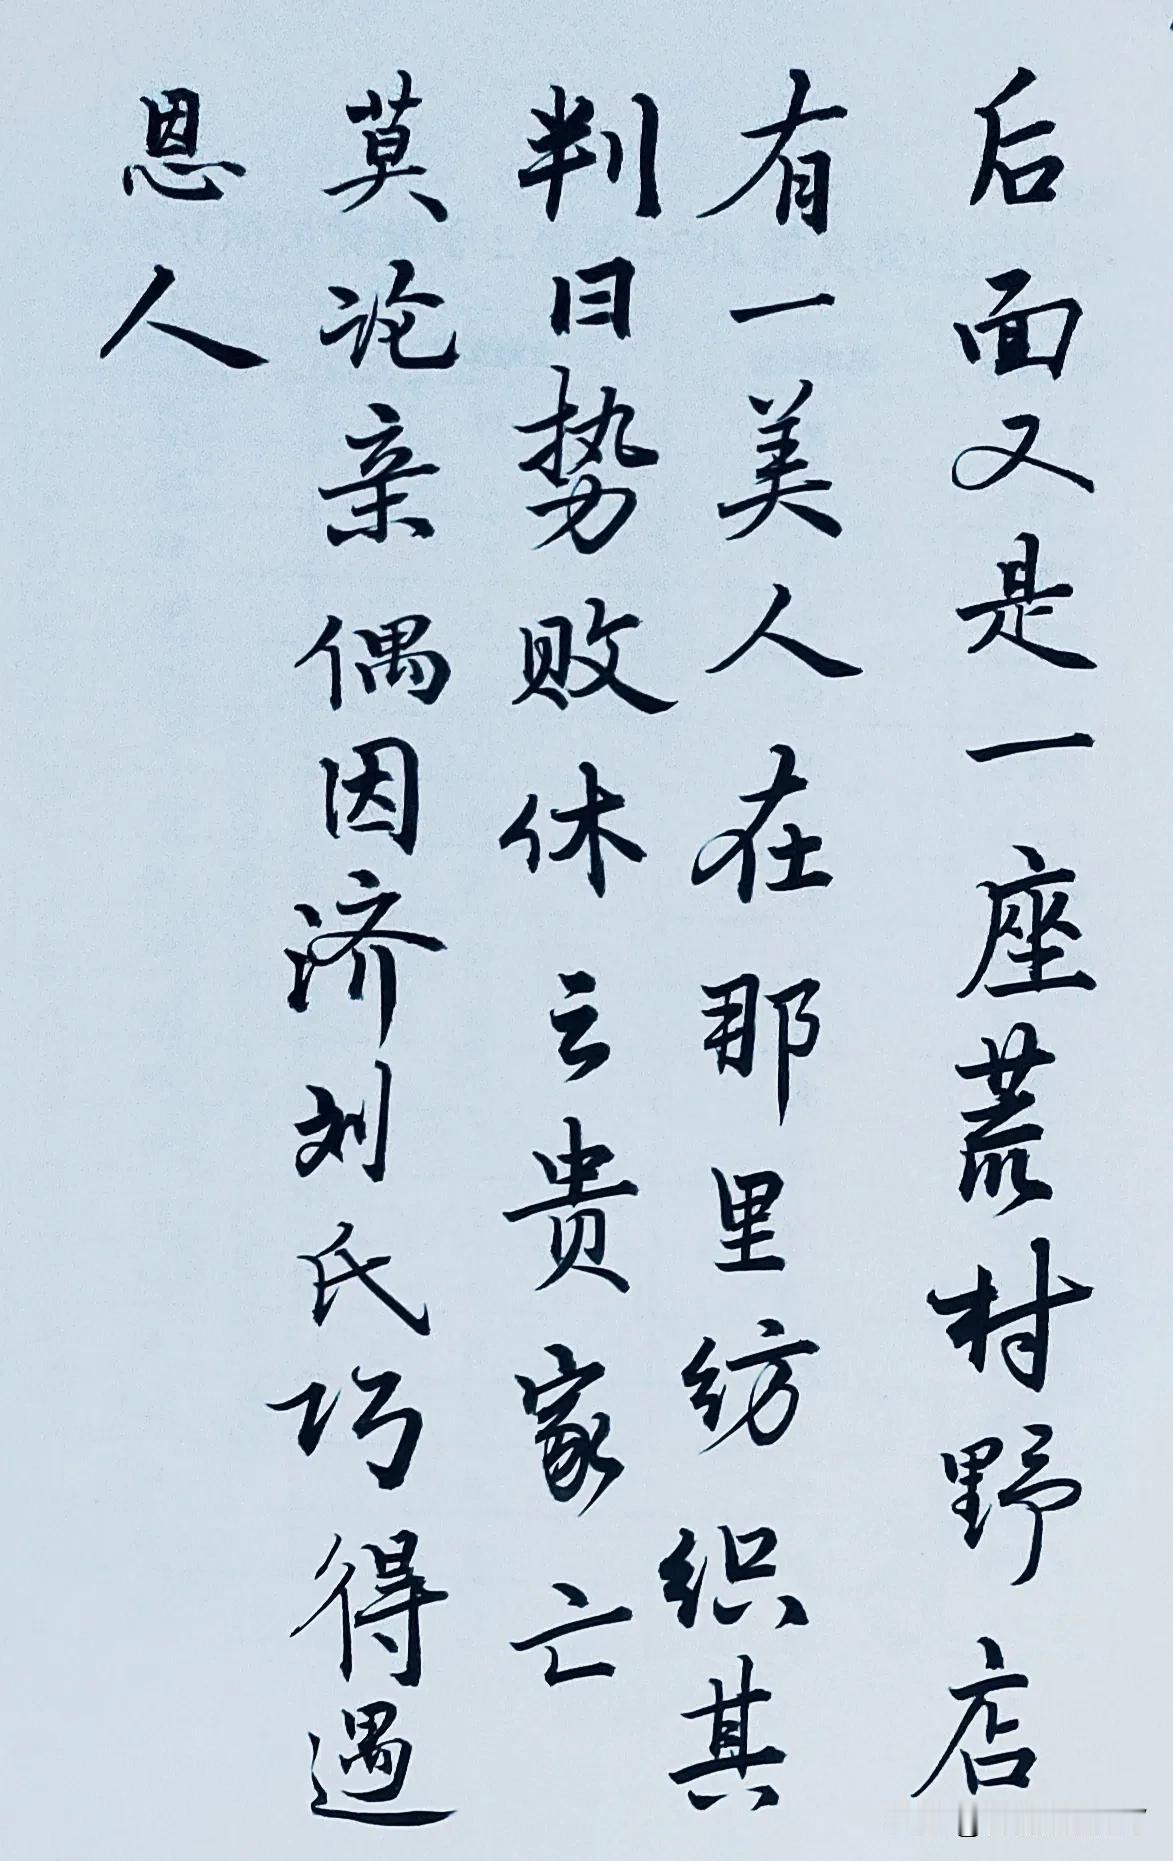 后面又是一座荒村野店
有一美人在那里纺织其
判曰势败休云贵家亡
莫论亲偶因济刘氏巧得遇
恩人